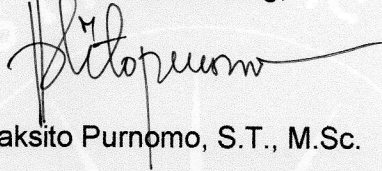 aksito Purnomo, S.T., M.Sc.